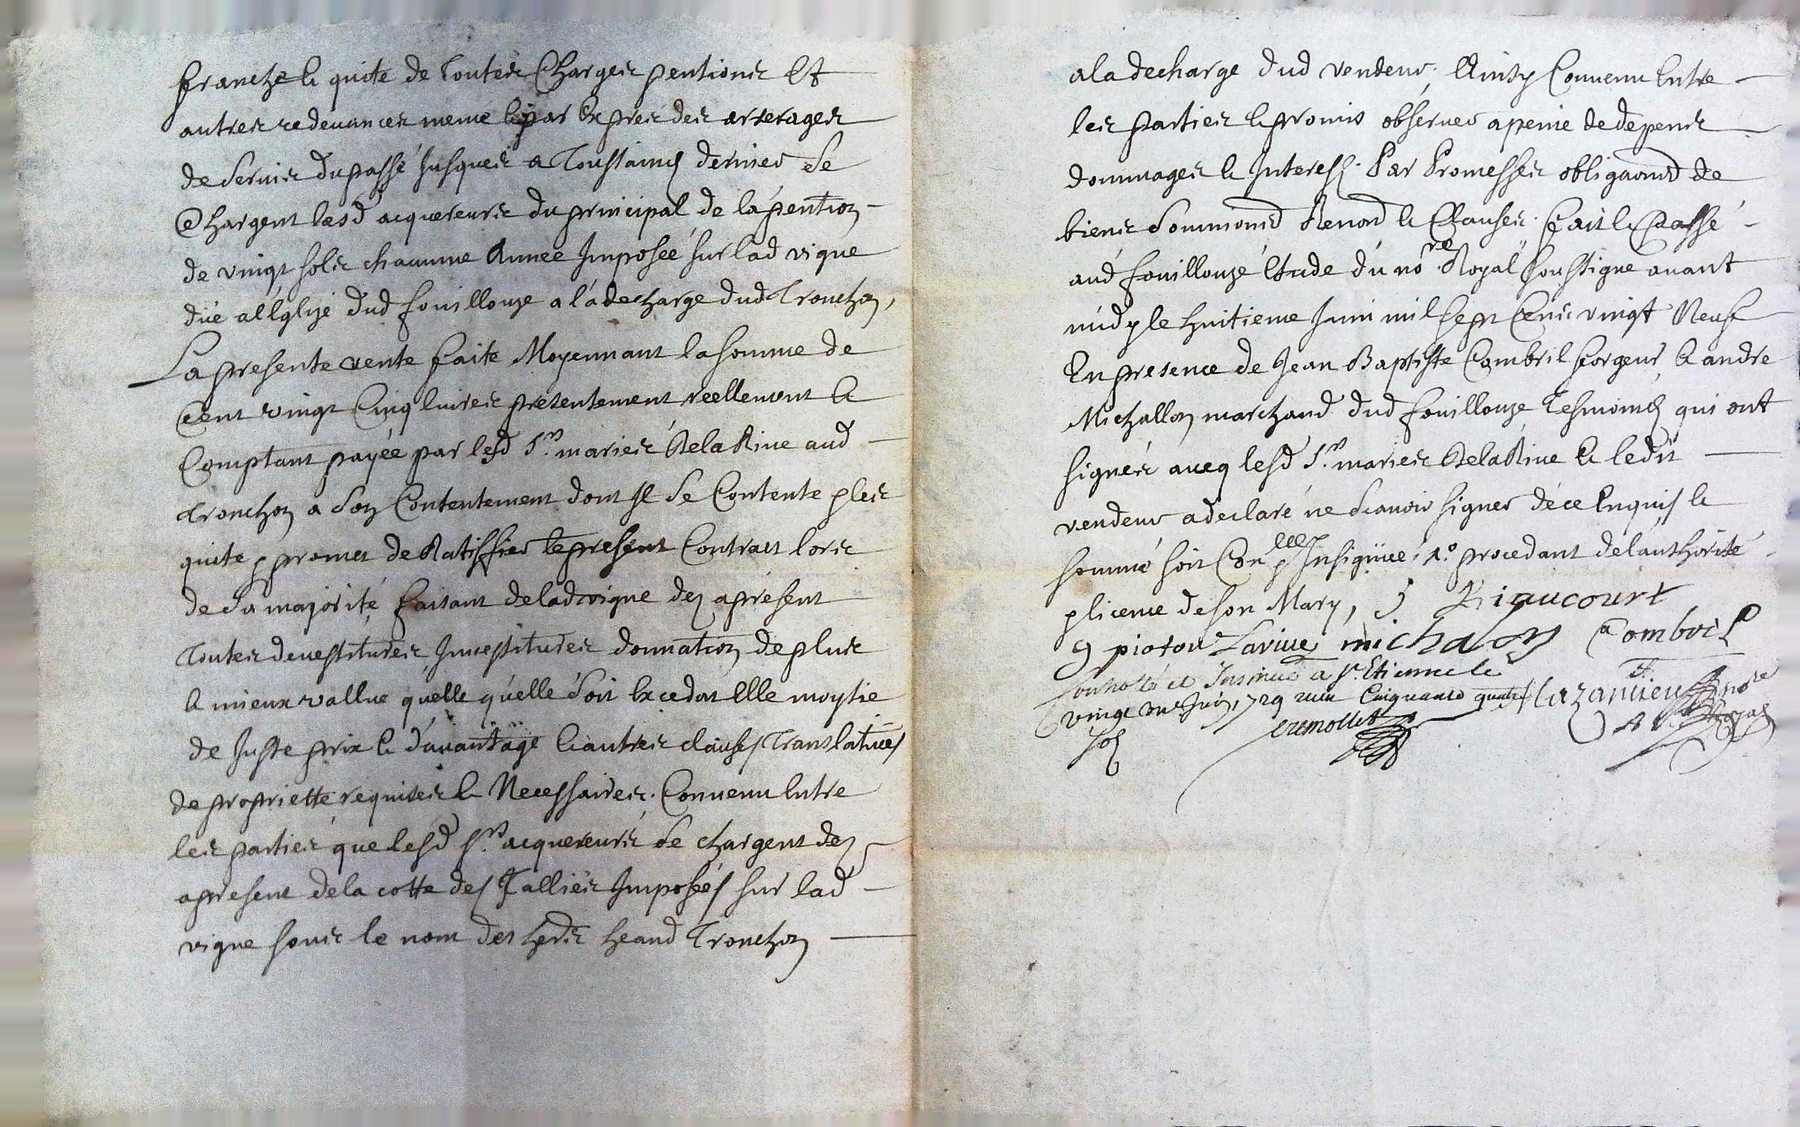 franche & quite de toutes Charges pentions Et
autres redevances meme & par Expres des arrerages
de servis du passé Jusques a Toussaincts dernier se
Chargent lesd acquereurs du principal de la pention
de vingt sols chacunne Année Imposée sur lad vigne
düe al'Eglize dud fouillouze a la decharge dud Tronchon,
La presente vente faite Moyennant la somme de
Cent vingt Cinq livres présentement réellement &
Comptant payée par lesd Srs mariés Delarive aud
Tronchon a son Contentement dont Il se Contente
quite promet de Ratiffier le present Contract lors
de sa majorité faisant de lad vigne dez aprésent
Toutes devestitures Investitures donnation de plus
& mieux vallue quelle quelle soit Excedat Elle moytie
de Juste prix & davantage & autres clauses Translatives
de propriette requises & Necessaires. Convenu Entre
les parties que lesd Srs acquereurs se chargent dez
apresent de la cotte des Tallies Imposées sur lad
vigne sous le nom des hers Tronchon
a la decharge dud vendeur. Ainsy Convenu Entre
les parties & promis observer a peine de depens
dommages & Interest. Par Promesses obligaons de
biens soummons Renons & Clauses. fait & Passé
aud fouillouze Etude du nore Royal soussigne avant
midy le huitieme Juin mil sept Cens vingt Neuf
En presence de Jean Baptiste Combril forgeur & andre
Michallon marchand dud fouillouze Tesmoins qui ont
signés avecq lesd Srs mariés Delarive & ledit
vendeur a declaré ne scavoir signer déce Enquis &
sommé soit Insinüée. procedant délauthorité
plicence de son Mary,
Larive michalon Combril
Controllé et Insinué a St Etienne le
vingt Juin 1729
sols